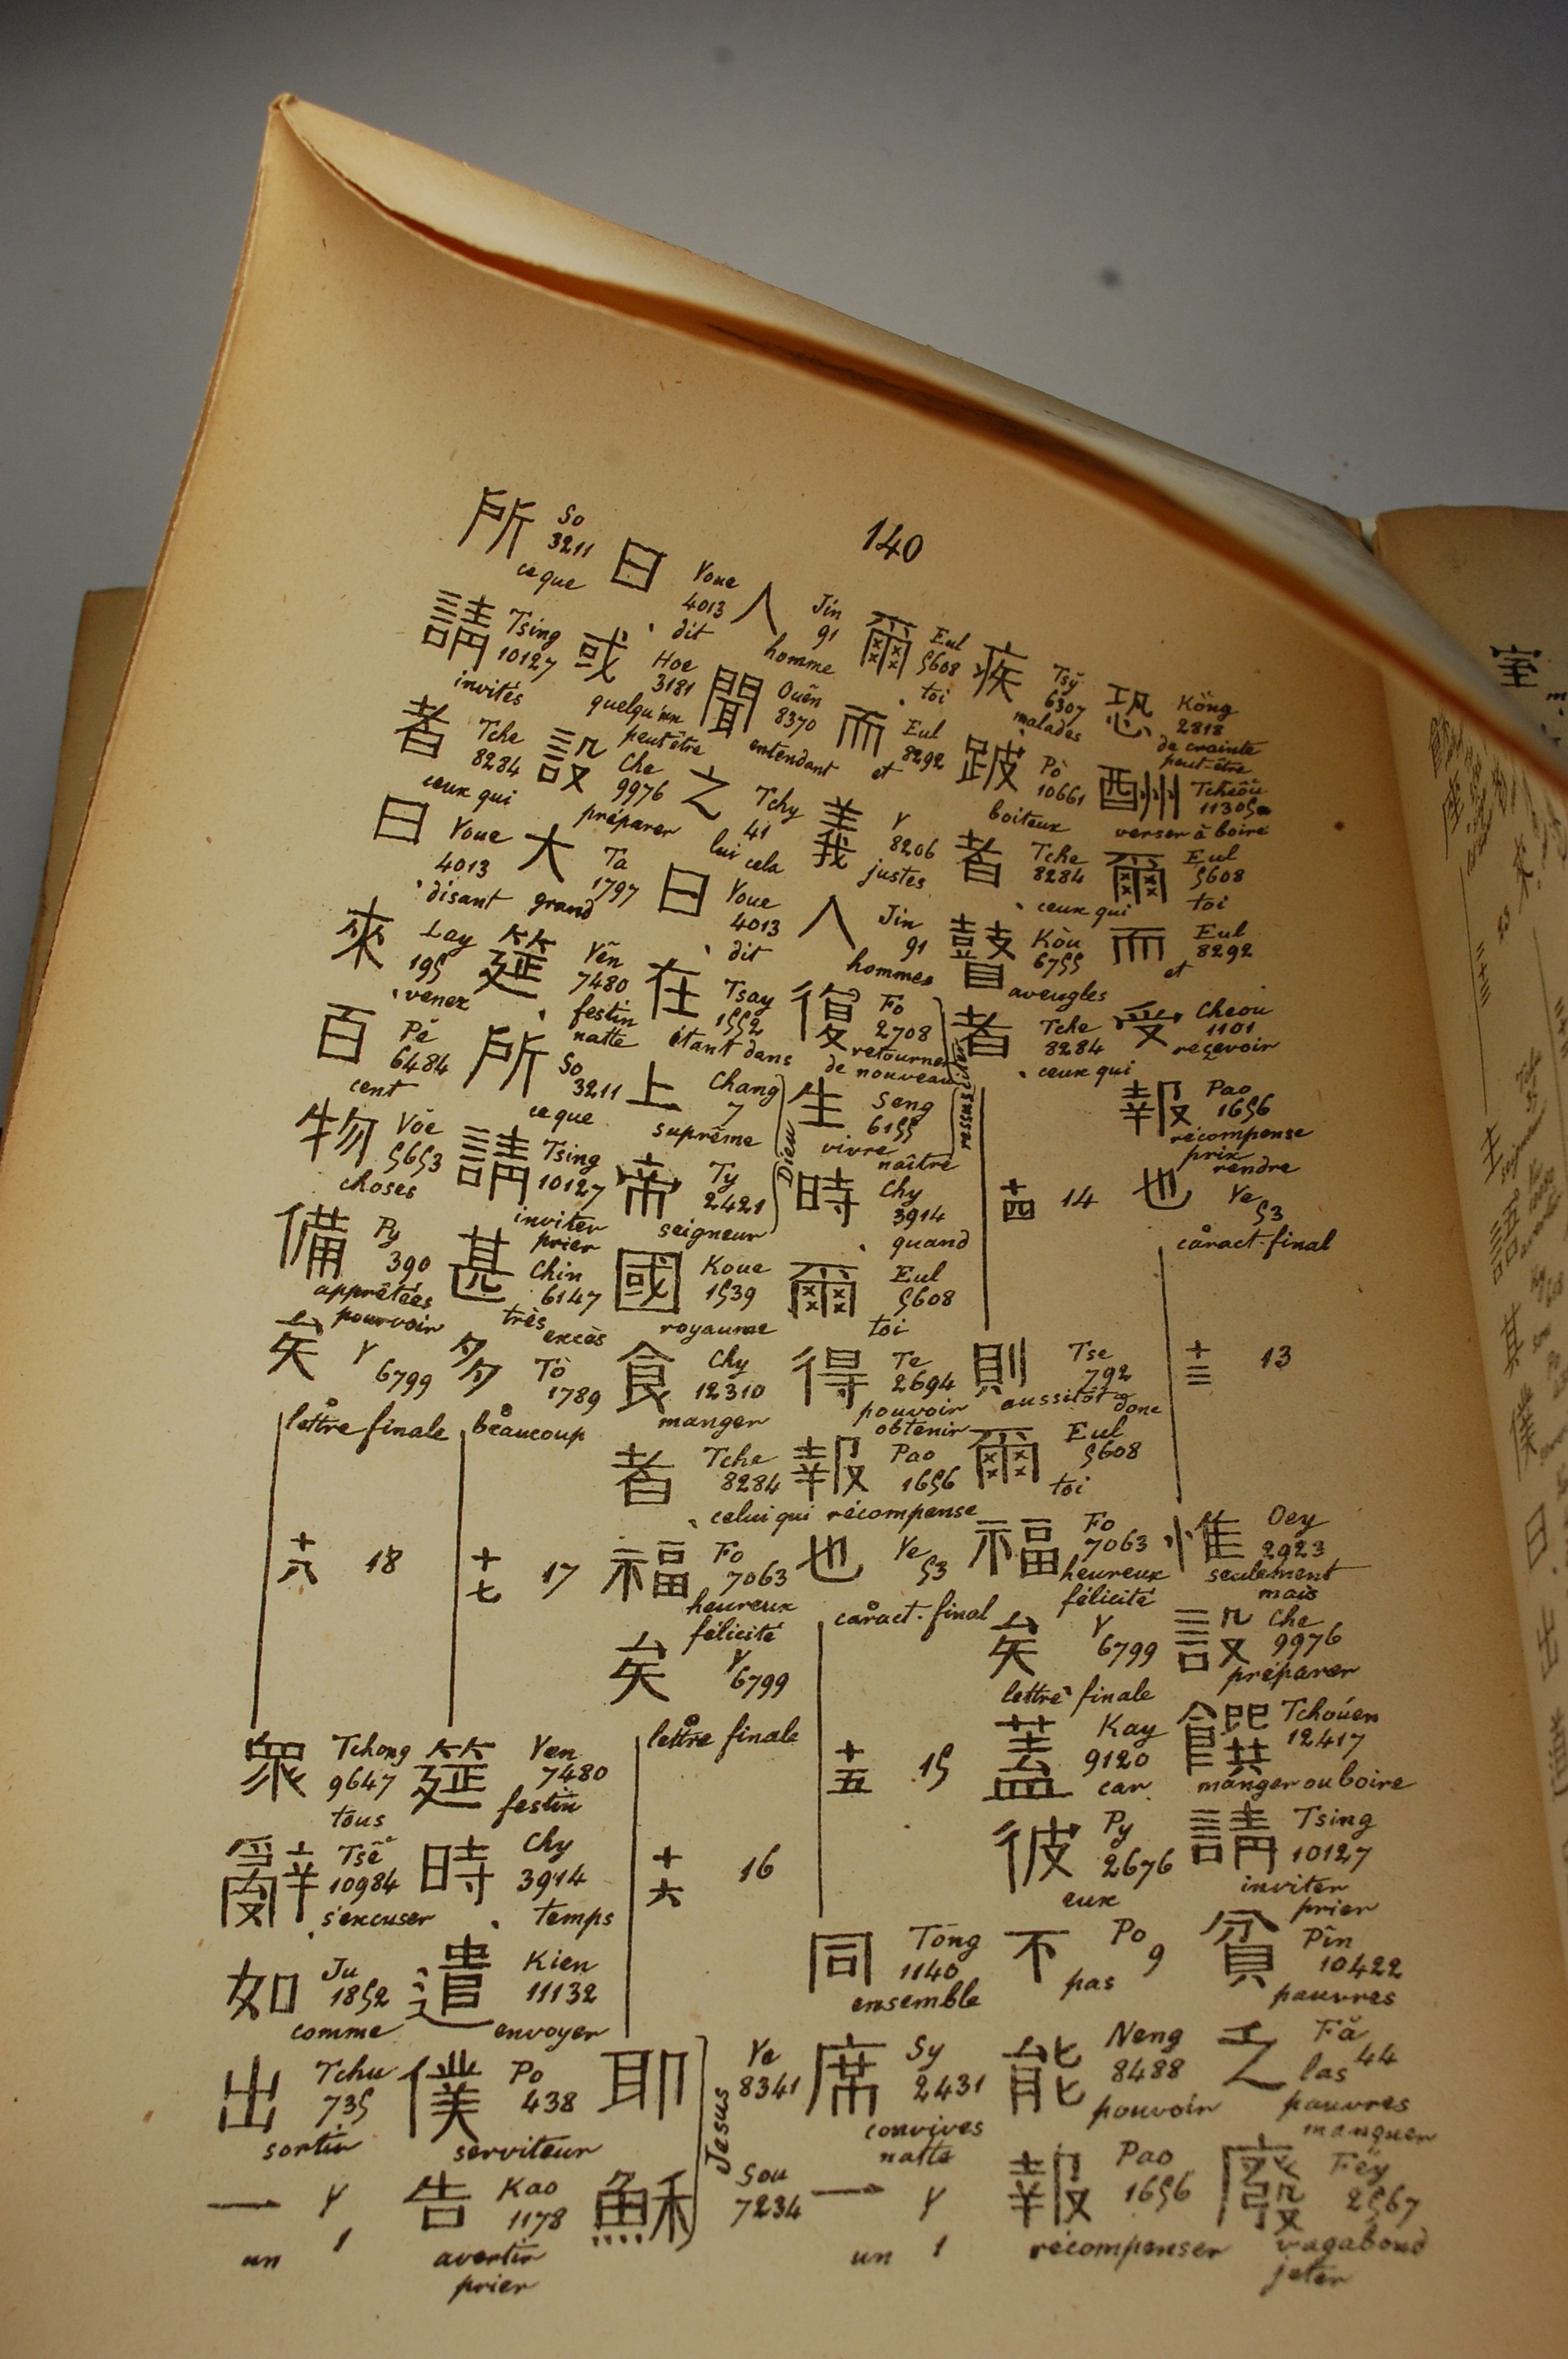 140
恐 Kŏng 2818 de crainte peut-être
酬 Tcheôu 11305 verser à boire
爾 Eul 5608 toi
而 Eul 8292 et
受 Cheou 1101 recevoir
報 Pao 1656 récompense prix rendre
也 Ye 53 caract. final
十三 13
惟 Oey 2923 seulement mais
設 Che 9976 préparer
饌 Tchoúen 12417 manger ou boire
請 Tsing 10127 inviter prier
貧 Pîn 10422 pauvres
乏 Fă 44 las pauvres manquer
廢 Féy 2567 vagabond jeter
疾 Tsÿ 6307 malades
跛 Pò 10661 boiteux
者 Tche 8284 ceux qui
瞽 Kòu 6755 aveugles
者 Tche 8284 ceux qui
十四 14
則 Tse 792 aussitôt donc
爾 Eul 5608 toi
福 Fo 7063 heureux félicité
矣 Y 6799 lettre finale
蓋 Kay 9120 car
彼 Py 2676 eux
不 Po 9 pas
能 Neng 8488 pouvoir
報 Pao 1656 récompenser
爾 Eul 5608 toi
而 Eul 8292 et
義 Y 8206 justes
人 Jin 91 hommes
復 Fo 2708 retourner de nouveau
生 Seng 6155 vivre naître
時 Chy 3914 quand
爾 Eul 5608 toi
得 Te 2694 pouvoir obtenir
報 Pao 1656 récompense
也 Ye 53 caract. final
十五 15
同 Tong 1140 ensemble
席 Sy 2431 convives natte
一 Y 1 un
人 Jin 91 homme
聞 Ouên 8370 entendant
之 Tchy 41 lui cela
曰 Youe 4013 dit
在 Tsay 1552 étant dans
上 Chang 7 suprême
帝 Ty 2421 seigneur
Dieu
國 Koue 1539 royaume
食 Chy 12310 manger
者 Tche 8284 celui qui
福 Fo 7063 heureux félicité
矣 Y 6799 lettre finale
十六 16
耶 Ye 8341
穌 Sou 7234
Jesus
曰 Youe 4013 dit
或 Hoe 3181 quelqu'un peut être
設 Che 9976 préparer
大 Ta 1797 grand
筵 Yên 7480 festin natte
所 So 3211 ce que
請 Tsing 10127 inviter prier
甚 Chin 6147 très excès
多 To 1789 beaucoup
十七 17
筵 Yen 7480 festin
時 Chy 3914 temps
遣 Kien 11132 envoyer
僕 Po 438 serviteur
告 Kao 1178 avertir prier
所 So 3211 ce que
請 Tsing 10127 invités
者 Tche 8284 ceux qui
曰 Youe 4013 disant
來 Lay 195 venez
百 Pĕ 6484 cent
物 Vŏe 5653 choses
備 Py 390 apprêtées pourvoir
矣 Y 6799 lettre finale
十八 18
眾 Tchong 9647 tous
辭 Tsê 10984 s'excuser
如 Ju 1852 comme
出 Tchu 735 sortir
一 Y 1 un